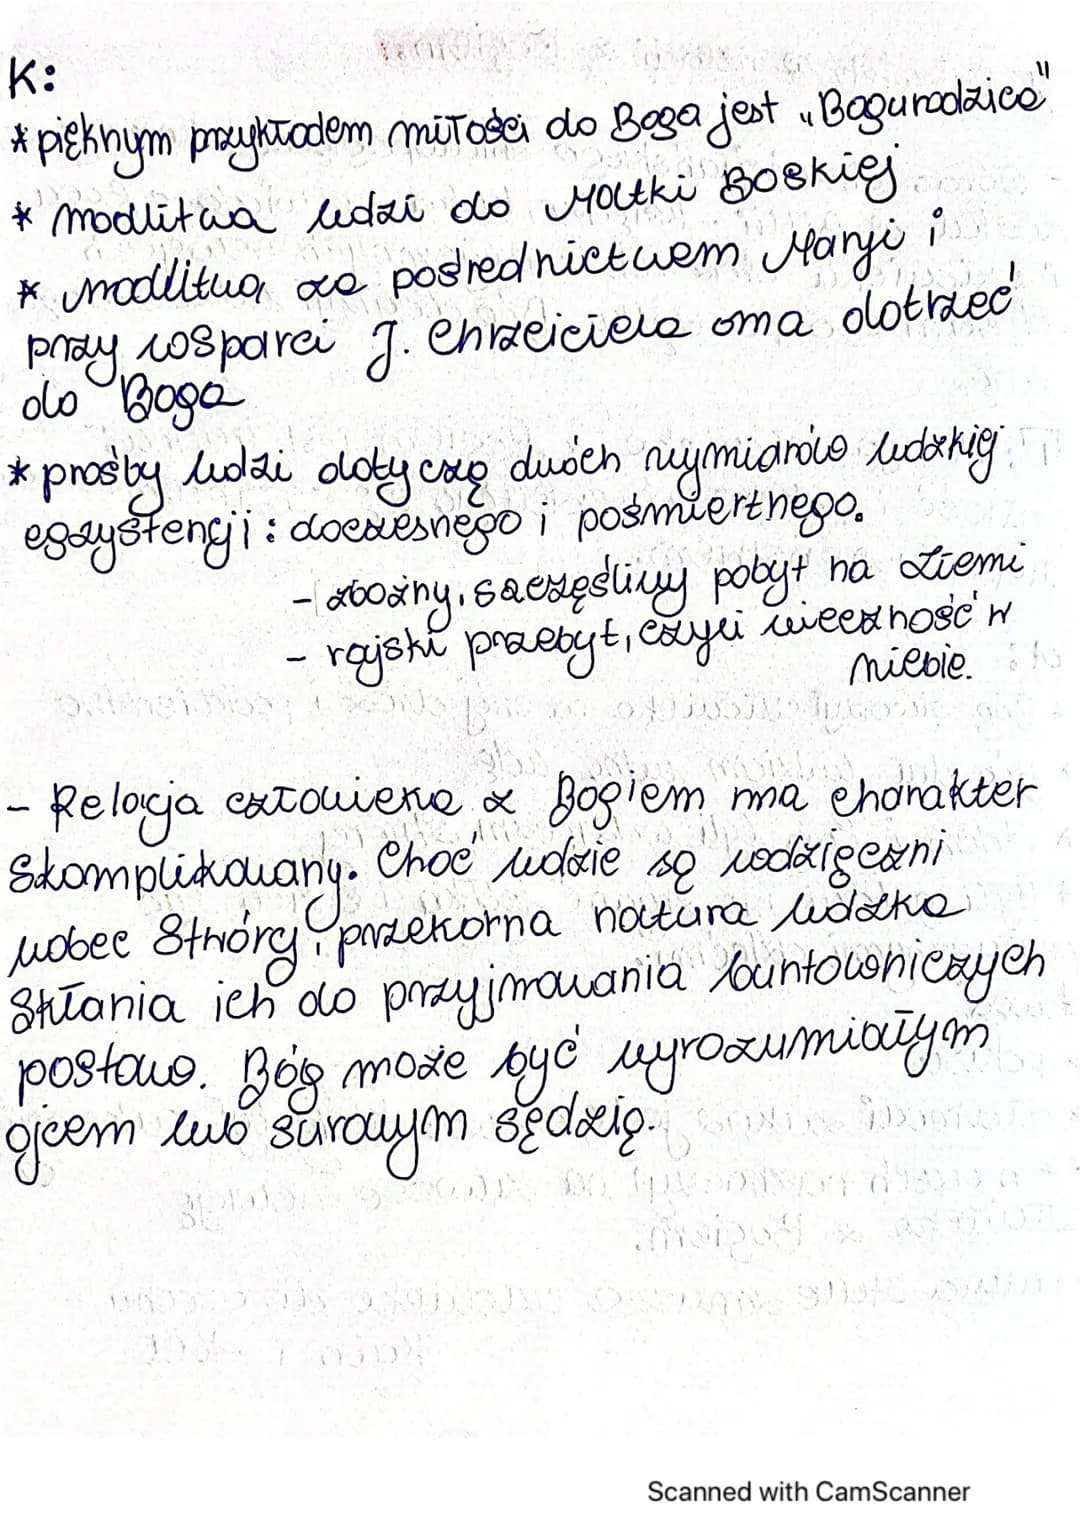 K:
* pięknym przykładem miłości do Boga jest „Bogurodzica"
* modlitwa ludzi do Matki Boskiej
* modlitwa za pośrednictwem Maryi i
przy wsparci J. Chrzciciela ma dotrzeć
do Boga
* prośby ludzi dotyczą dwóch wymiarów ludzkiej
egzystencji: doczesnego i pośmiertnego.
- zbożny, szczęśliwy pobyt na ziemi
- rajski przebyt, czyli wieczność w
niebie.
- Relacja człowieka z Bogiem ma charakter
skomplikowany. Choć ludzie są wdzięczni
wobec Stwórcy, przekorna natura ludzka
skłania ich do przyjmowania buntowniczych
postaw. Bóg może być wyrozumiałym
ojcem lub surowym sędzią.
Scanned with CamScanner